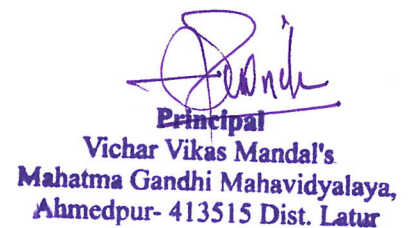 Principal
Vichar Vikas Mandal's
Mahatma Gandhi Mahavidyalaya,
Ahmedpur- 413515 Dist. Latur